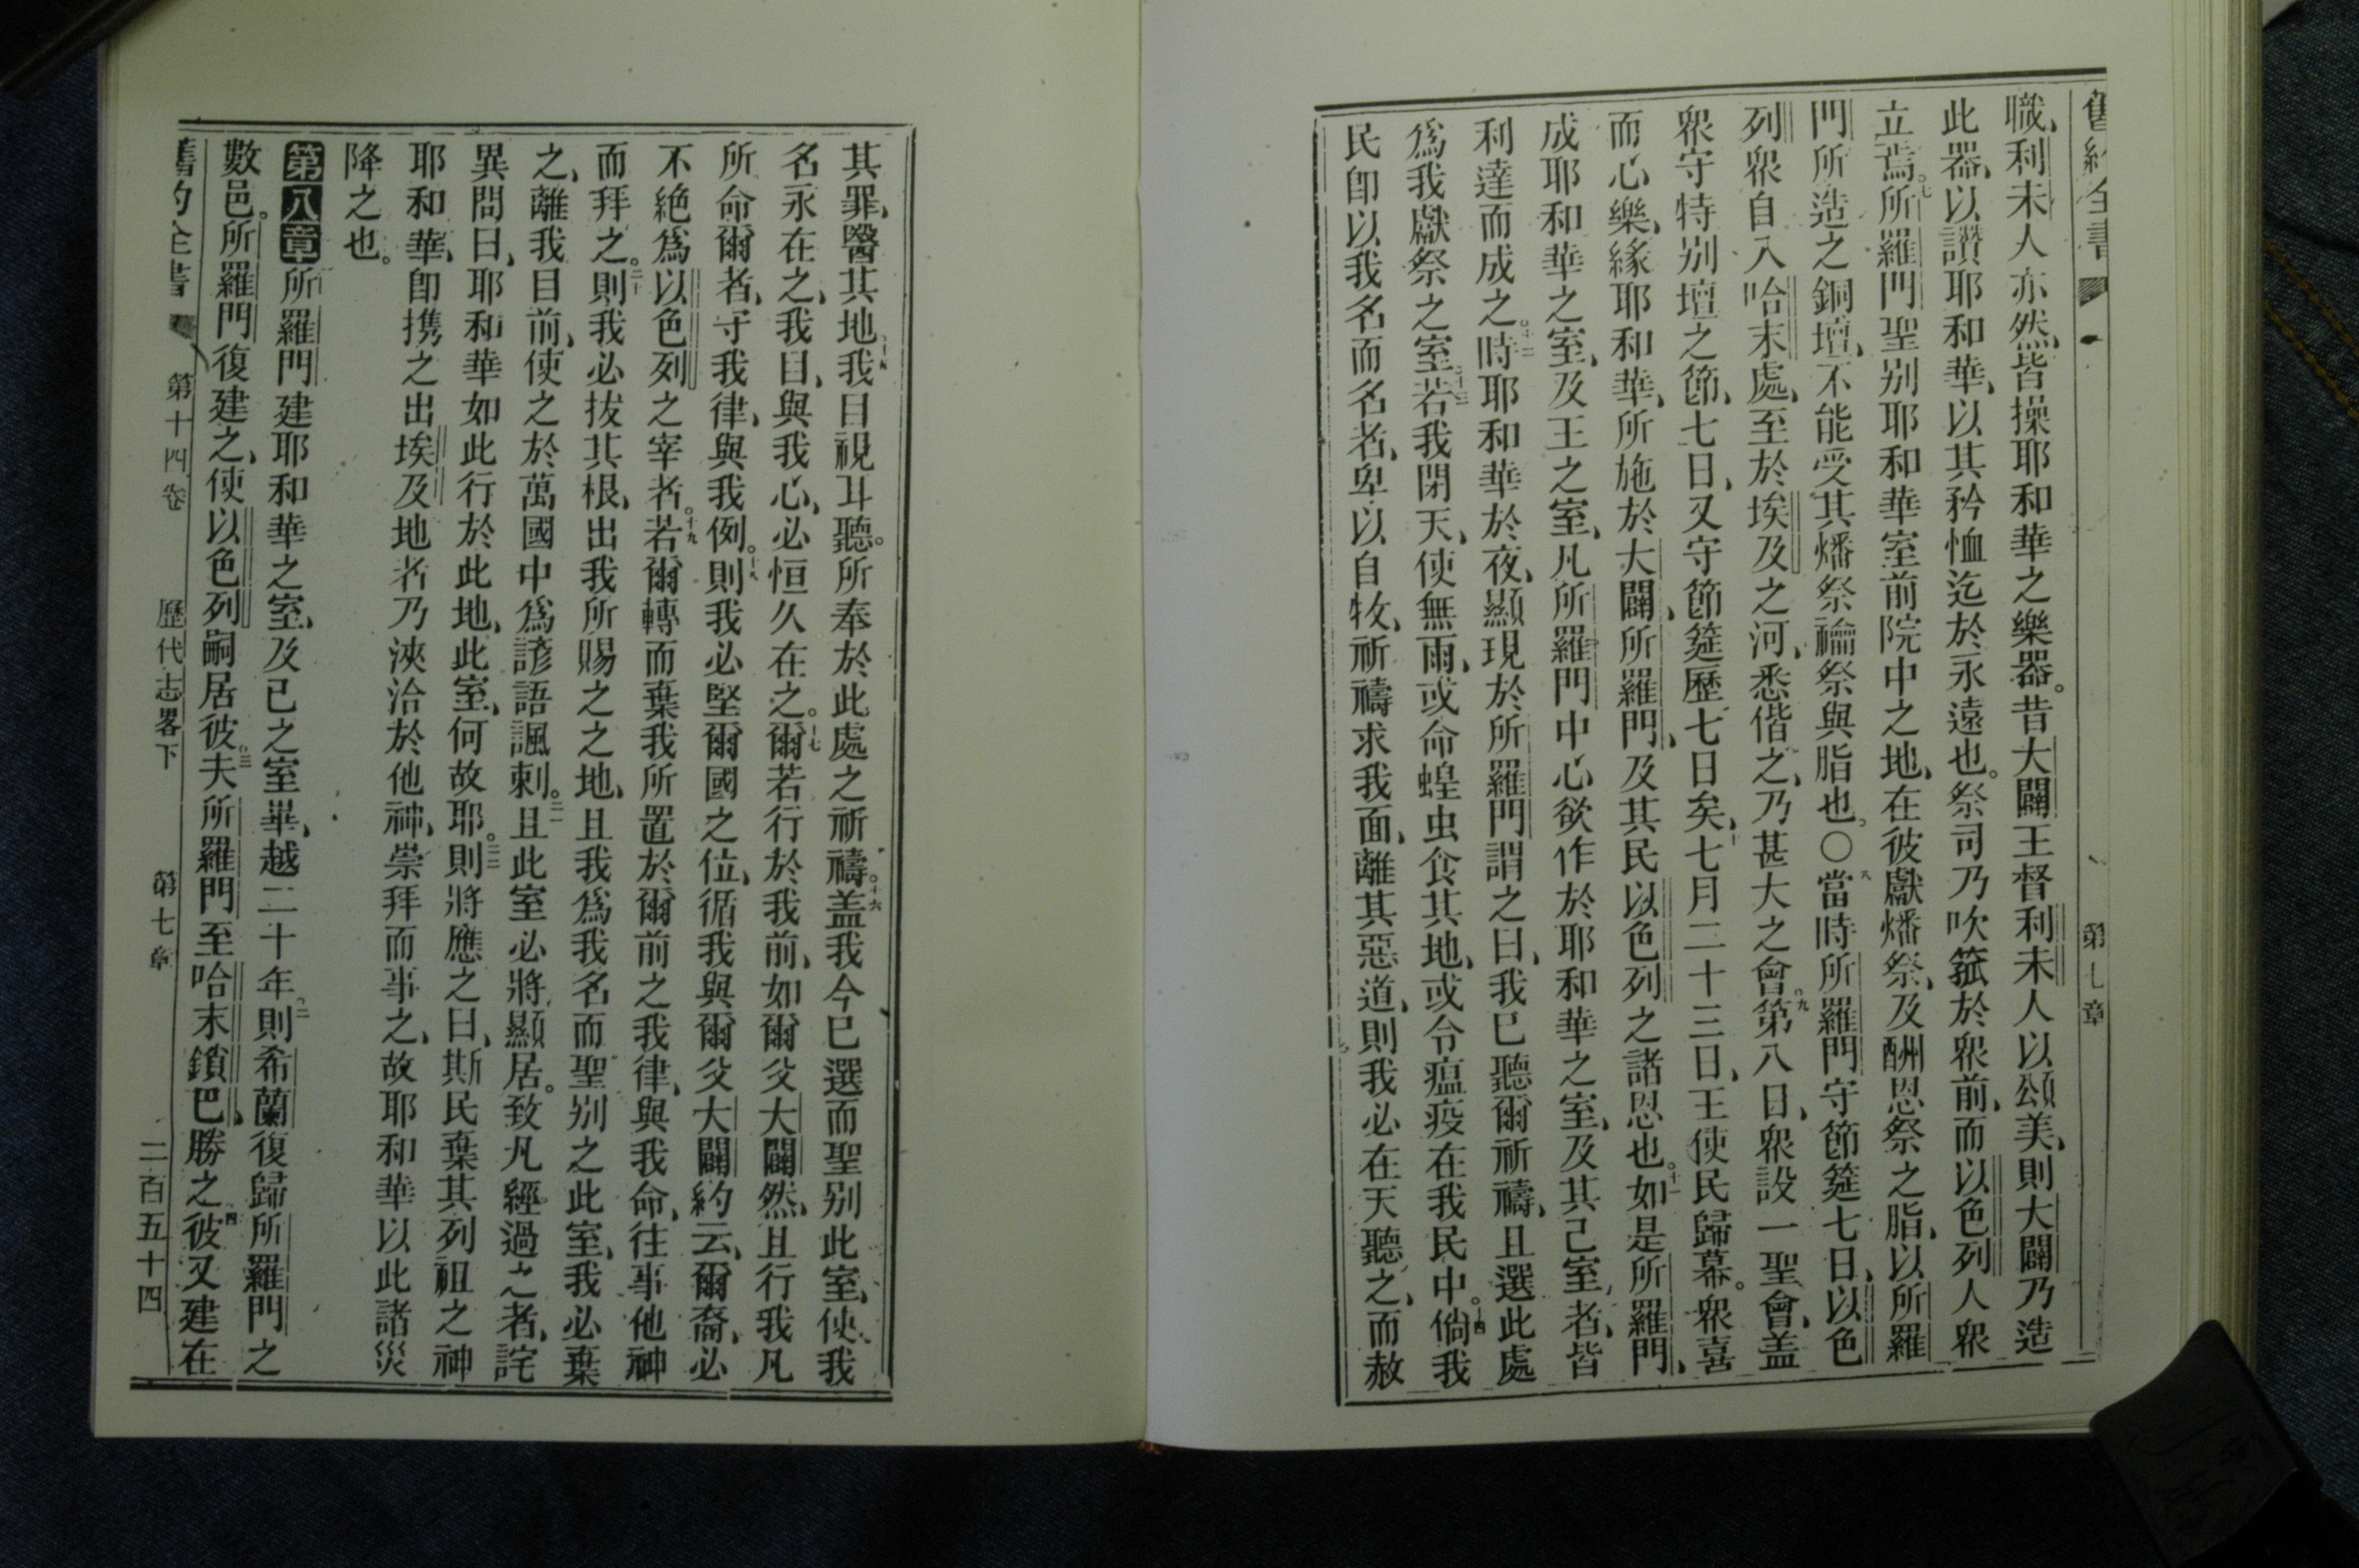 舊約全書 第七章
職、利未人亦然、皆操耶和華之樂器。昔大闢王督利未人以頌美、則大闢乃造
此器、以讚耶和華、以其矜恤迄於永遠也。祭司乃吹箛於眾前、而以色列人眾
立焉。七所羅門聖别耶和華室前院中之地、在彼獻燔祭、及酬恩祭之脂、以所羅
門所造之銅壇、不能受其燔祭禴祭與脂也。○八當時所羅門守節筵七日、以色
列眾自入哈末處、至於埃及之河、悉偕之、乃甚大之會。九第八日、眾設一聖會、蓋
眾守特别壇之節、七日、又守節筵歷七日矣、十七月二十三日、王使民歸幕。眾喜
而心樂、緣耶和華、所施於大闢、所羅門、及其民以色列之諸恩也。十一如是所羅門、
成耶和華之室、及王之室、凡所羅門中心欲作於耶和華之室、及其己室者、皆
利達而成之。十二時耶和華於夜、顯現於所羅門謂之曰、我已聽爾祈禱、且選此處
爲我獻祭之室。十三若我閉天、使無雨、或命蝗虫食其地、或令瘟疫在我民中。十四倘我
民卽以我名而名者、卑以自牧、祈禱求我面、離其惡道、則我必在天聽之、而赦
其罪、醫其地。十五我目視耳聽。所奉於此處之祈禱。十六盖我今已選而聖别此室、使我
名永在之、我目、與我心、必恒久在之。十七爾若行於我前、如爾父大闢然、且行我凡
所命爾者、守我律、與我例。十八則我必堅爾國之位、循我與爾父大闢約云、爾裔、必
不絕爲以色列之宰者。十九若爾轉而棄我所置於爾前之我律、與我命、往事他神
而拜之。二十則我必拔其根、出我所賜之之地、且我爲我名而聖别之此室、我必棄
之、離我目前、使之於萬國中爲諺語諷刺。二一且此室必將顯居。致凡經過之者、詫
異問曰、耶和華如此行於此地、此室、何故耶。二二則將應之曰、斯民棄其列祖之神
耶和華、卽携之出埃及地者乃浹洽於他神、崇拜而事之、故耶和華以此諸災
降之也。
第八章 所羅門建耶和華之室、及己之室畢、越二十年、二則希蘭復歸所羅門之
數邑。所羅門復建之、使以色列嗣居彼。三夫所羅門至哈末鎖巴、勝之。四彼又建在
舊約全書 第十四卷 歷代志畧下 第七章 二百五十四